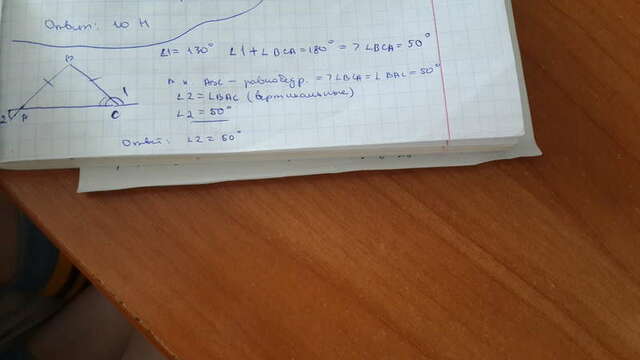 Ответ: 10 Н
∠1 = 130° ∠1 + ∠BCA = 180° => ∠BCA = 50°
ABC - равнобедр. => ∠BCA = ∠BAC = 50°
∠2 = ∠BAC (вертикальные)
∠2 = 50°
Ответ: ∠2 = 50°
B
1
2
A
C